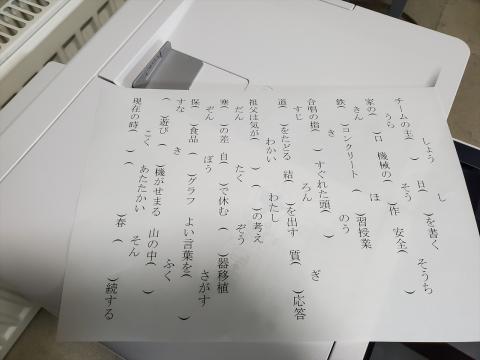 しょう　し
チームの主(　)　日(　)を書く
うら　そう　そうち
家の(　)口　機械の(　)作　安全(　)
きん　ほ
鉄(　)コンクリート　(　)習授業
き　のう
合唱の指(　)　すぐれた頭(　)
すじ　ろん　ぎ
道(　)をたどる　結(　)を出す　質(　)応答
わかい　わたし
祖父は気が(　)　(　)の考え
だん　たく　ぞう
寒(　)の差　自(　)で休む　(　)器移植
ぞん　ぼう　さがす
保(　)食品　(　)グラフ　よい言葉を(　)
すな　き　ふく
(　)遊び　(　)機がせまる　山の中(　)
こく　あたたかい　そん
現在の時(　)　(　)春　(　)続する